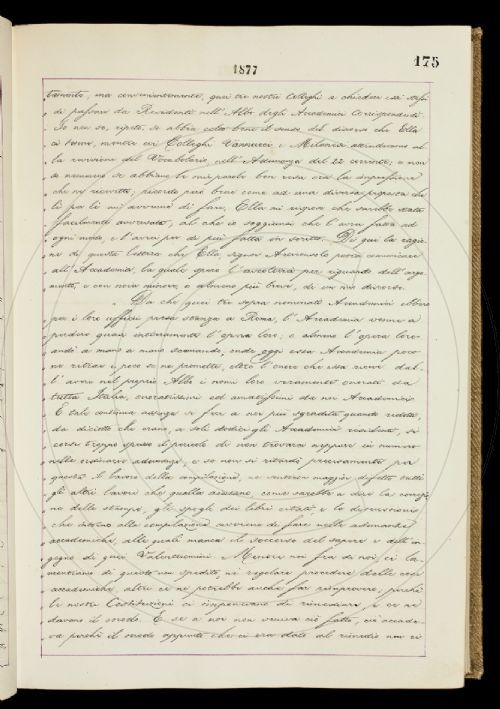 175
1877
tamente, ma convenientemente, quei tre nostri Colleghi a chiedere essi stessi
di passare da Residenti nell'Albo degli Accademici Corrispondenti.
Io non so, ripeto, se abbia colto bene il senso del discorso che Ella
ci tenne, mentre coi Colleghi Vannucci e Milanesi attendevamo al
la revisione del Vocabolario, nell'Adunanza del 22 corrente, e non
so nemmeno se abbiano le mie parole ben resa era la impressione
che ne ricevetti, ricordo però bene come ad una diversa proposta che
lì per lì mi avvenne di fare, Ella mi rispose che sarebbe stata
facilmente avversata, al che io soggiunsi che l'avrei fatta ad
ogni modo, e l'avrei poi di più fatta in scritto. Di qui la ragio
ne di questa lettera che Ella, signor Arciconsolo potrà comunicare
all'Accademia, la quale spero l'ascolterà per riguardo dell'argo
mento, e con noia minore, o almeno più breve, di un mio discorso.
Da che quei tre sopra nominati Accademici ebbero
per i loro ufficii presa stanza a Roma, l'Accademia venne a
perdere quasi interamente l'opera loro, o almeno l'opera loro
andò a mano a mano scemando, onde oggi essa Accademia poco
ne ritrae e poco se ne promette, oltre l'onore che essa riceve dal
l'avere nel proprio Albo i nomi loro veramente onorati da
tutta Italia, onoratissimi ed amatissimi da noi Accademici.
E tale continua assenza si fece a noi più sgradita quando ridotti
da diciotto che erano, a soli dodici gli Accademici residenti, si
corse troppo spesso il pericolo di non trovarci neppure in numero
nelle ordinarie adunanze, e se non si ritardò precisamente per
questo il lavoro della compilazione, ne sentirono maggior difetto tutti
gli altri lavori che quella aiutano, come sarebbe a dire la correzio
ne delle stampe, gli spogli dei libri citati, e le discussioni
che intorno alla compilazione avviene di fare nelle adunanze
accademiche, alle quali manca il soccorso del sapere e dell'in
gegno di quei Valentuomini. Mentre noi fra di noi ci la
mentiamo di questo non spedito, nè regolare procedere delle cose
accademiche, altri ce ne potrebbe anche far rimprovero, perchè
le nostre Costituzioni ci imponevano di rimediarvi e ce ne
davano il modo. E se a noi non veniva ciò fatto, ciò accade
va perchè il modo appunto che ci era dato al rimedio non ci